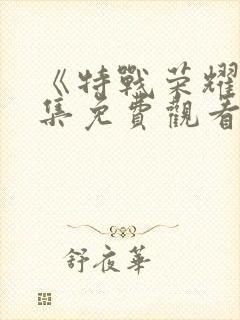 《特戰荣耀
集免費觀看
舒夜華